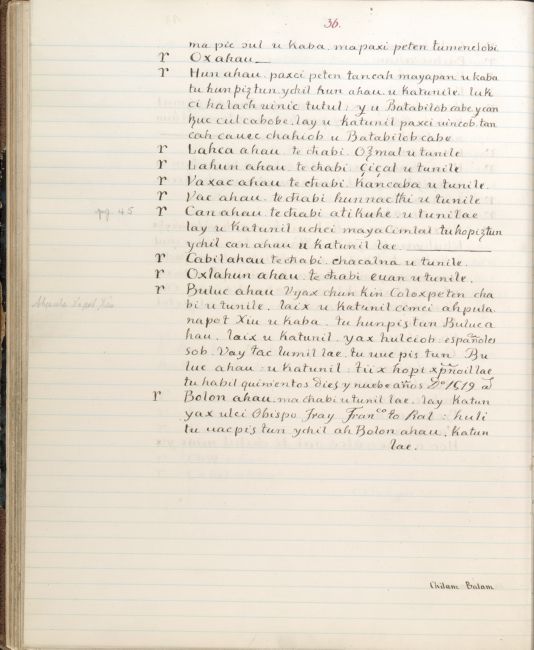 36.
ma pic sul u kaba. mapaxi peten tumenelobi
ɤ Oxahau
ɤ Hun ahau. paxci peten tancah mayapan u kaba
tu hunpiztun ychil hun ahau u katunile: luk
ci halach uinic tutul: y u Batabilob cabe y can
cul cabobe. lay u katunil paxci uincob. tan
cah cauec chahiob u Batabilob cabe
ɤ Lahca ahau. te chabi. Oɔmal u tunile
ɤ Lahun ahau. te chabi. Çiçal u tunile
ɤ Vaxac ahau te chabi. Kancaba u tunile.
ɤ Vac ahau. te chabi hunnacthi u tunile
pg. 45 ɤ Can ahau te chabi atikuhe. u tunilae
lay u Katunil uchci maya Cimlal tu hopiztun
ychil can ahau u katunil lae.
ɤ Cabil ahau te chabi. chacalna u tunile.
ɤ Oxlahun ahau. te chabi euan u tunile.
ɤ Buluc ahau Vyax chun Kin Coloxpeten cha
bi u tunile. laix u Katunil cimci ahpula.
napot Xiu u kaba. tu hunpis tun Buluc a
hau. laix u katunil. yax hulciob. españoles
sob. Vay tac lumil lae. tu uuc pis tun Bu
luc ahau: u katunil: tiix hopi xp̃noil lae
tu habil quinientos dies y nuebe años Do 1519 as
ɤ Bolon ahau. ma chabi u tunil lae. lay Katun
yax ulci Obispo Fray Franco to Ral: huli
tu uacpis tun ychil ah Bolon ahau. Katun
lae.
Chilam Balam